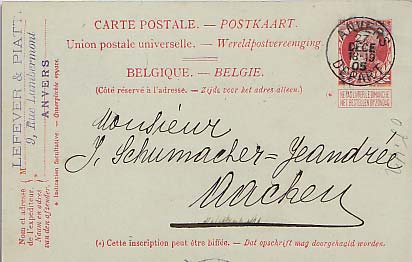 CARTE POSTALE. — POSTKAART.
Union postale universelle. — Wereldpostvereeniging
BELGIQUE. — BELGIE.
(Côté réservé à l'adresse. — Zijde voor het adres alleen.)
ANVERS
DECE
18-19
05
DEPART
NE PAS LIVRER LE DIMANCHE
NIET BESTELLEN OP ZONDAG
Monsieur
J. Schumacher-Jeandrée
Aachen
(*) Cette inscription peut être biffée. — Dat opschrift mag doorgehaald worden.
Nom et adresse
de l'expéditeur.
Naam en adres
van den afzender.
LEFEVER & PIATT.
9, Rue Lambermont
ANVERS
* Indication facultative. - Onverplichte opgave.